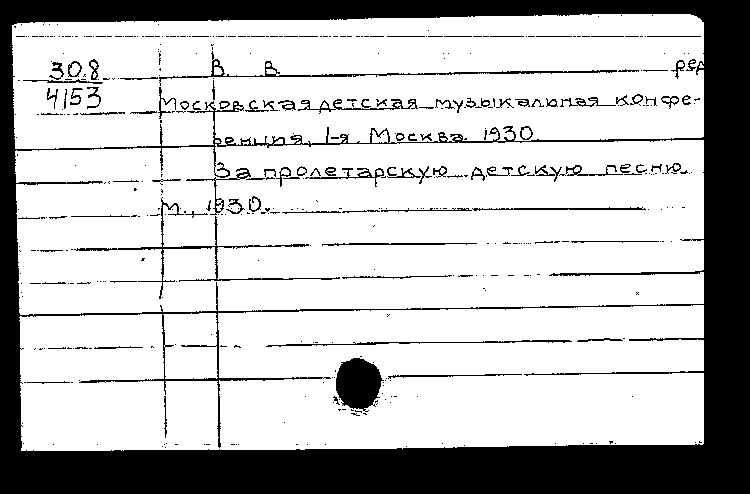 30.8 В. В. ред
4153 Московская детская музыкальная конфе-
ренция, 1-я. Москва. 1930.
За пролетарскую детскую песню.
М., 1930.